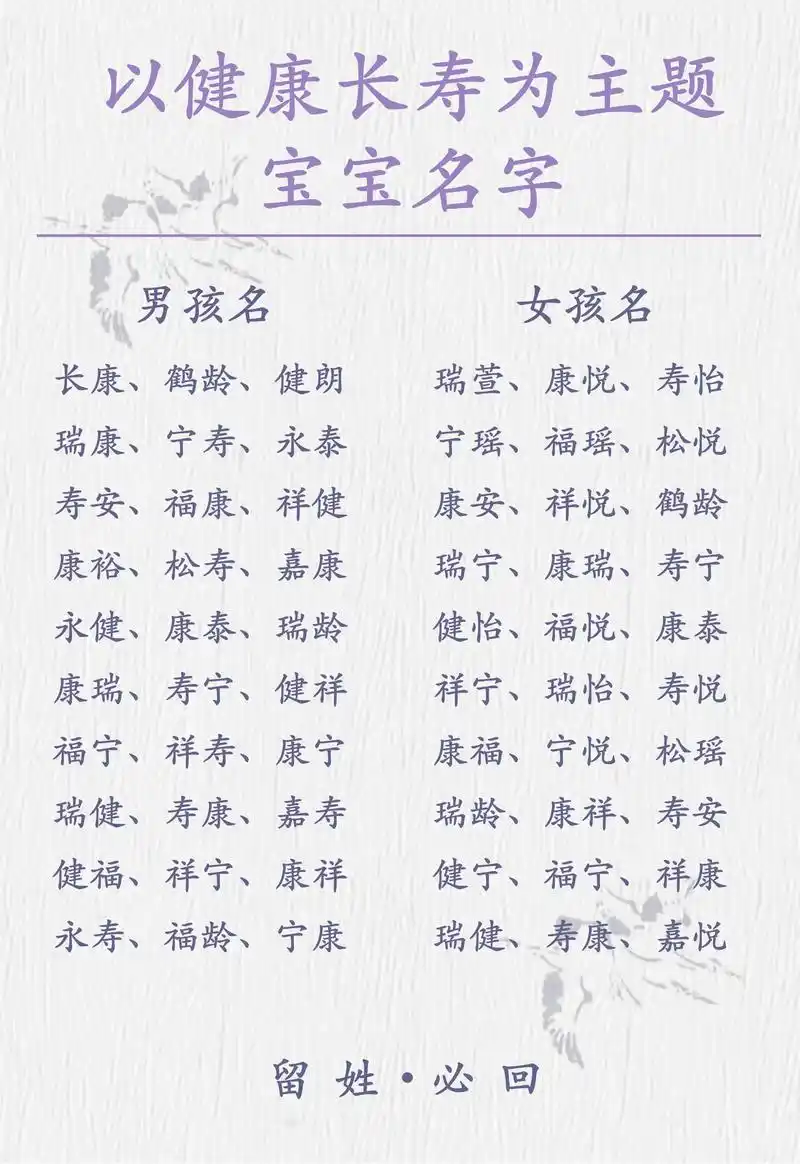 以健康长寿为主题
宝宝名字
男孩名
长康、鹤龄、健朗
瑞康、宁寿、永泰
寿安、福康、祥健
康裕、松寿、嘉康
永健、康泰、瑞龄
康瑞、寿宁、健祥
福宁、祥寿、康宁
瑞健、寿康、嘉寿
健福、祥宁、康祥
永寿、福龄、宁康
女孩名
瑞萱、康悦、寿怡
宁瑶、福瑶、松悦
康安、祥悦、鹤龄
瑞宁、康瑞、寿宁
健怡、福悦、康泰
祥宁、瑞怡、寿悦
康福、宁悦、松瑶
瑞龄、康祥、寿安
健宁、福宁、祥康
瑞健、寿康、嘉悦
留姓·必回